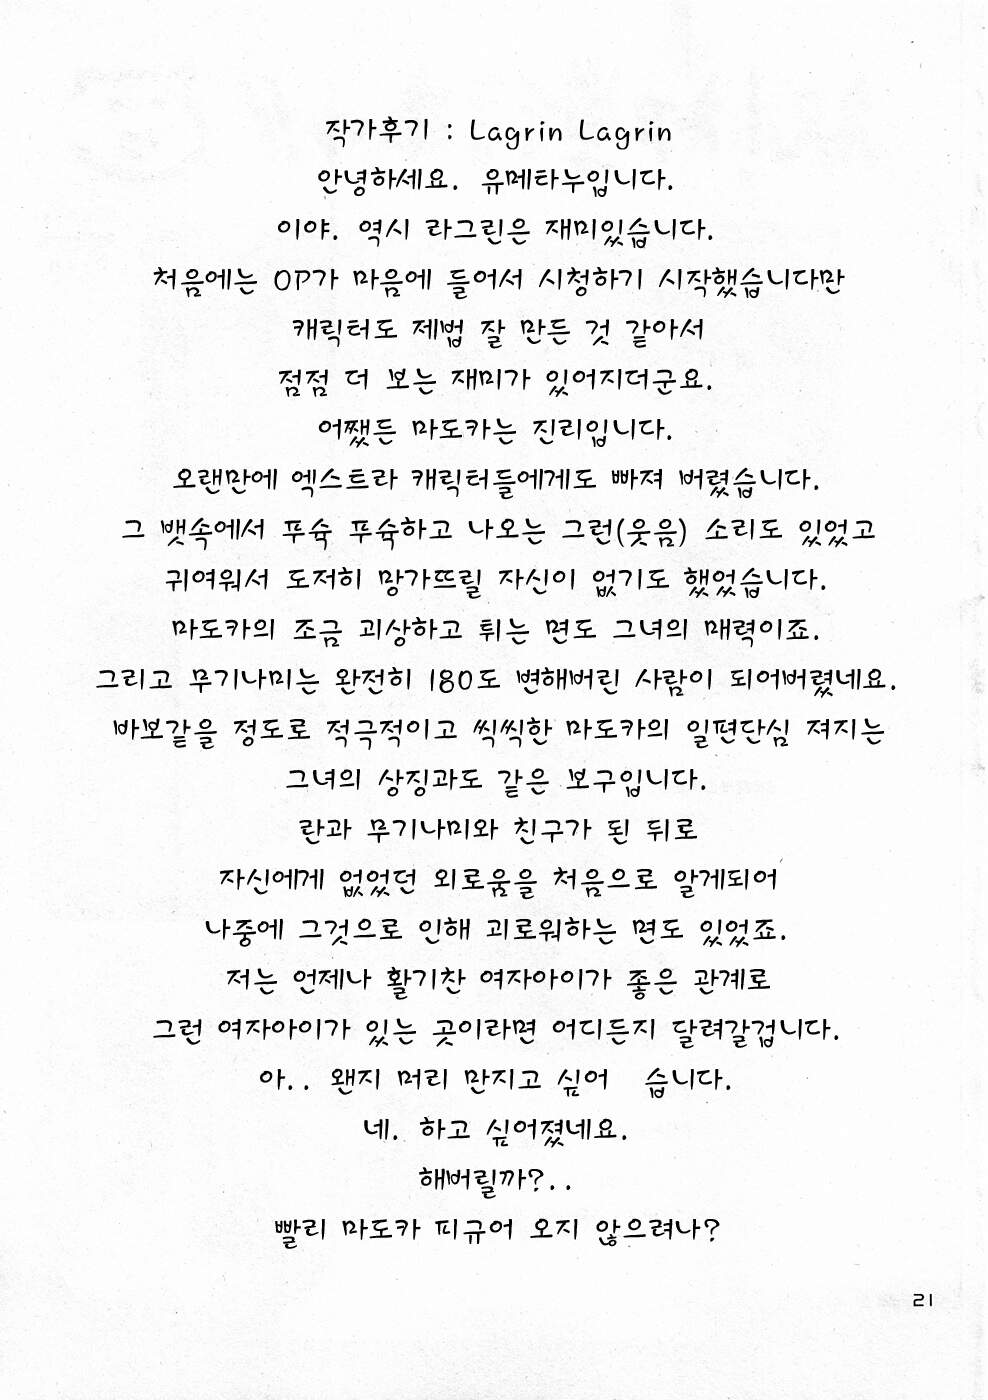 작가후기 : Lagrin Lagrin
안녕하세요. 유메타누입니다.
이야. 역시 라그린은 재미있습니다.
처음에는 OP가 마음에 들어서 시청하기 시작했습니다만
캐릭터도 제법 잘 만든 것 같아서
점점 더 보는 재미가 있어지더군요.
어쨌든 마도카는 진리입니다.
오랜만에 엑스트라 캐릭터들에게도 빠져 버렸습니다.
그 뱃속에서 푸슉 푸슉하고 나오는 그런(웃음) 소리도 있었고
귀여워서 도저히 망가뜨릴 자신이 없기도 했었습니다.
마도카의 조금 괴상하고 튀는 면도 그녀의 매력이죠.
그리고 무기나미는 완전히 180도 변해버린 사람이 되어버렸네요.
바보같을 정도로 적극적이고 씩씩한 마도카의 일편단심 져지는
그녀의 상징과도 같은 보구입니다.
란과 무기나미와 친구가 된 뒤로
자신에게 없었던 외로움을 처음으로 알게되어
나중에 그것으로 인해 괴로워하는 면도 있었죠.
저는 언제나 활기찬 여자아이가 좋은 관계로
그런 여자아이가 있는 곳이라면 어디든지 달려갈겁니다.
아.. 왠지 머리 만지고 싶어 습니다.
네. 하고 싶어졌네요.
해버릴까?..
빨리 마도카 피규어 오지 않으려나?
21